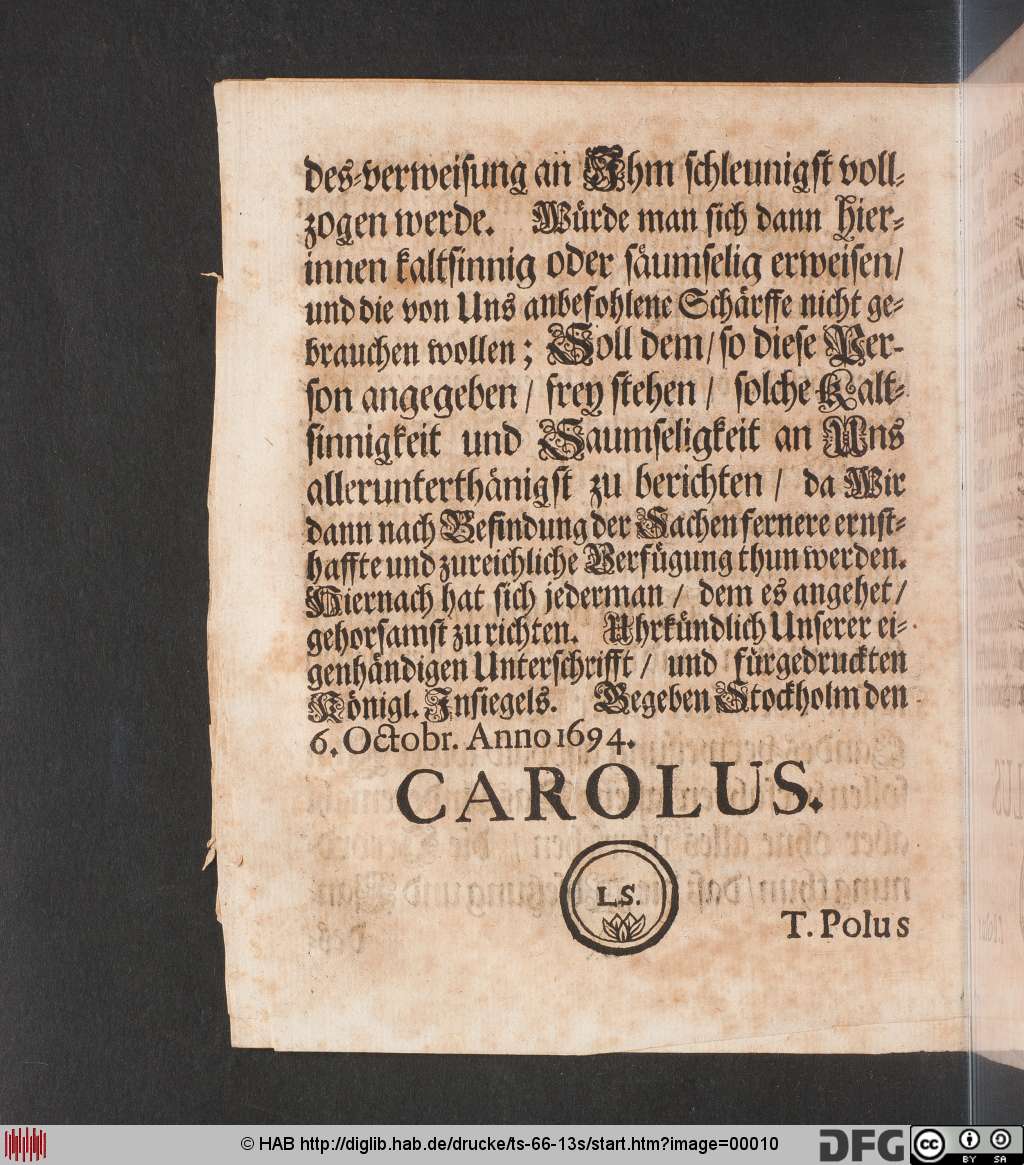 des-verweisung an Ihm schleunigst voll-
zogen werde. Würde man sich dann hier-
innen kaltsinnig oder säumselig erweisen/
und die von Uns anbefohlene Schärffe nicht ge-
brauchen wollen; Soll dem/ so diese Per-
son angegeben / frey stehen / solche Kalt-
sinnigkeit und Saumseligkeit an Uns
allerunterthänigst zu berichten / da Wir
dann nach Befindung der Sachen fernere ernst-
haffte und zureichliche Verfügung thun werden.
Hiernach hat sich jederman / dem es angehet/
gehorsamst zu richten. Uhrkündlich Unserer ei-
genhändigen Unterschrifft/ und fürgedruckten
Königl. Insiegels. Gegeben Stockholm den
6. Octobr. Anno 1694.
CAROLUS.
L.S.
T. Polus
© HAB http://diglib.hab.de/drucke/ts-66-13s/start.htm?image=00010
DFG
cc BY SA